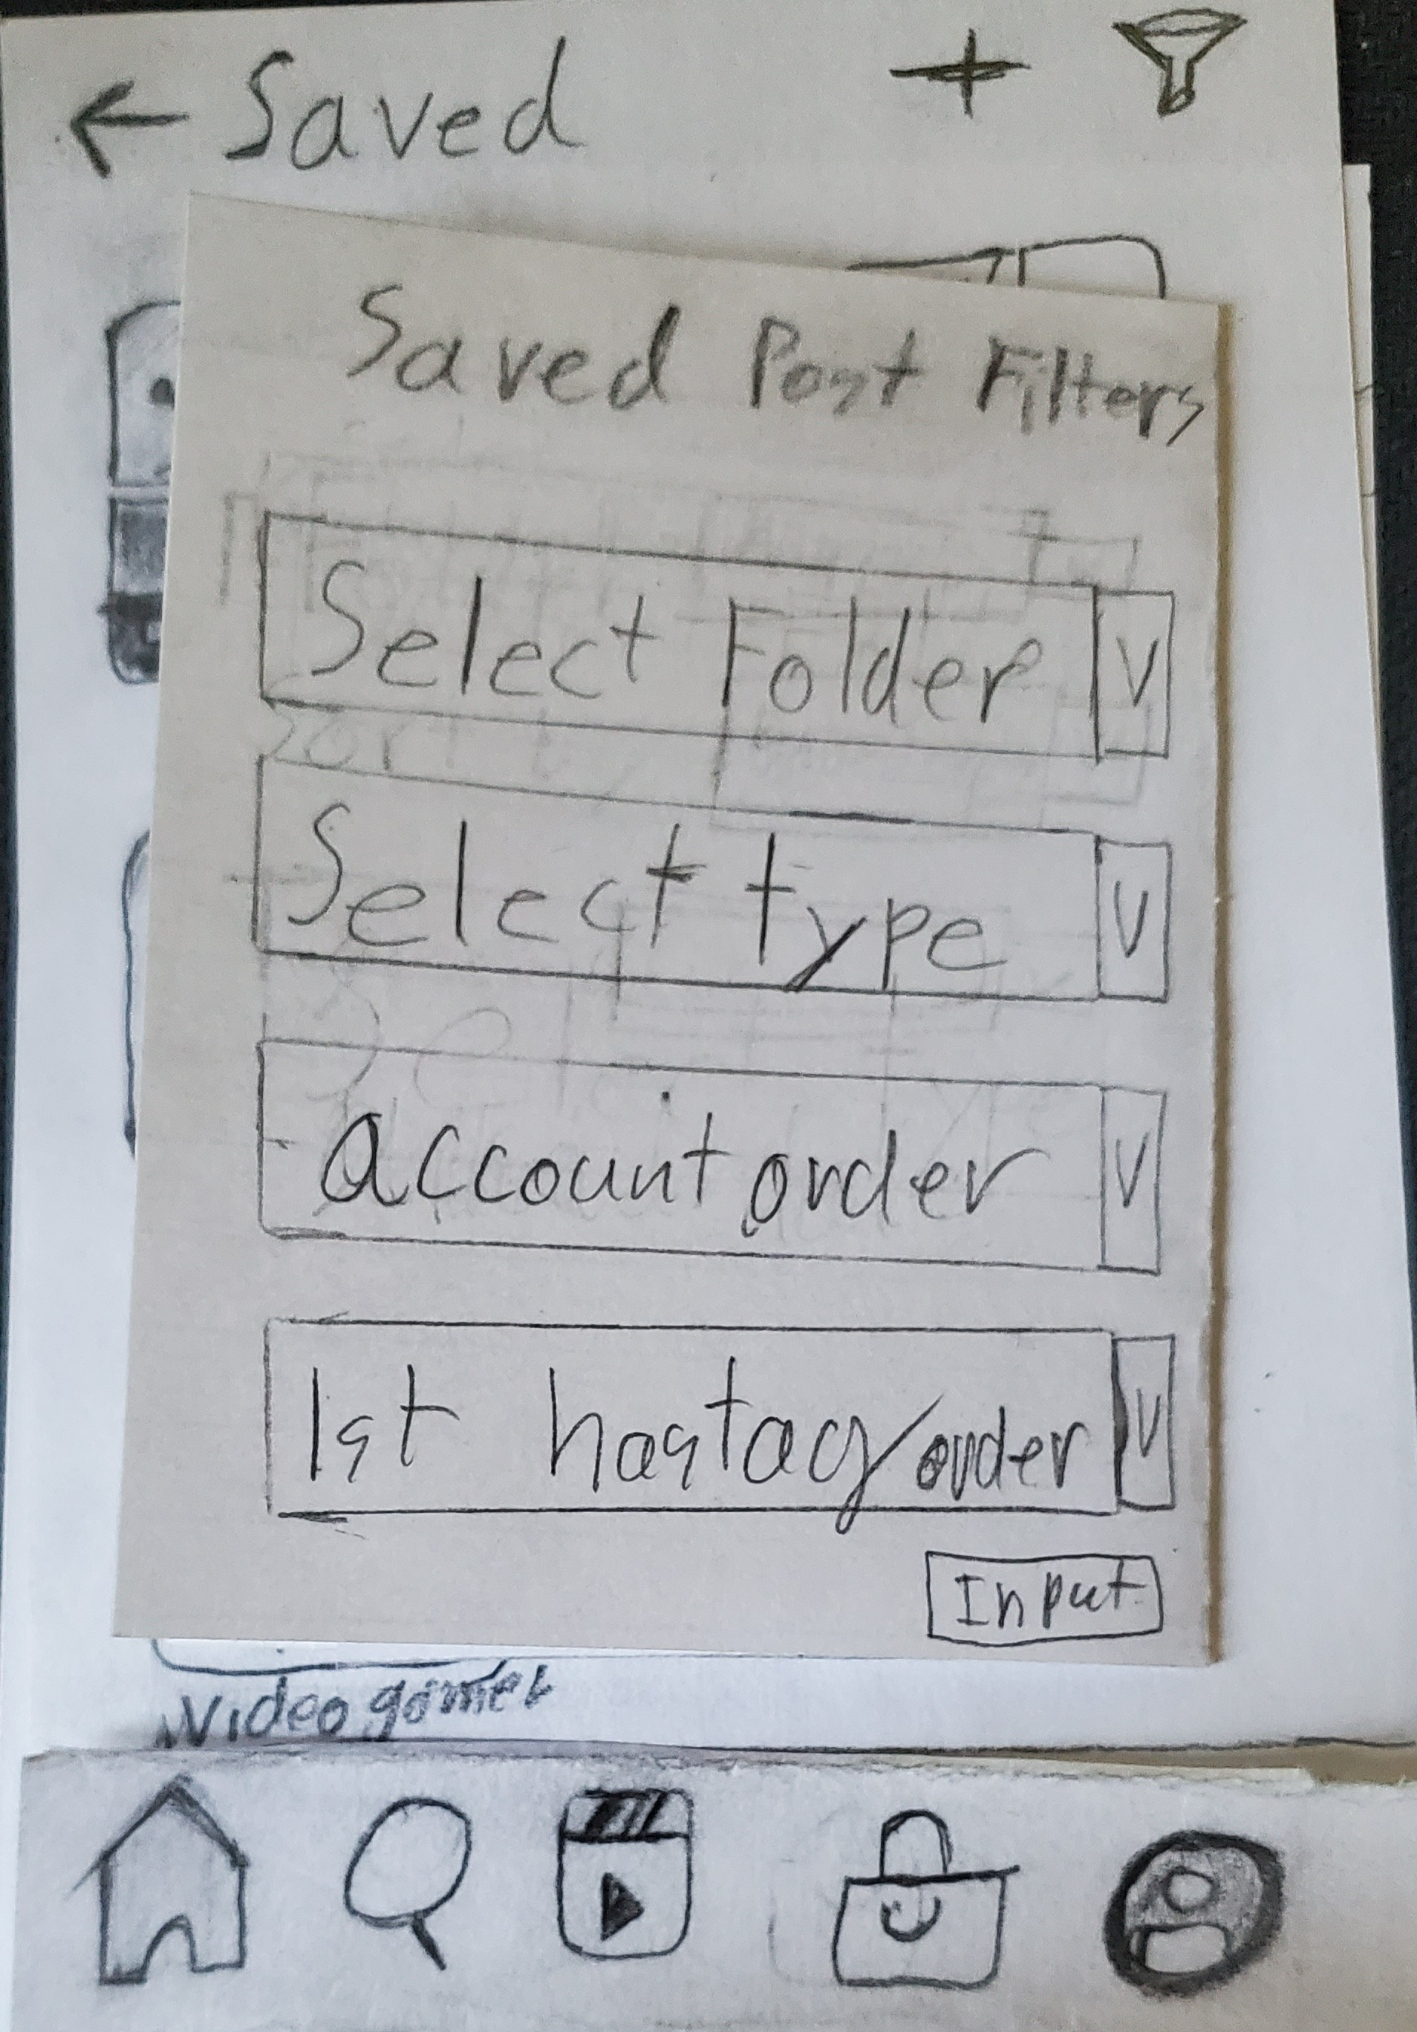 ← Saved +
Saved Post Filters
Select Folder V
Select type V
account order V
1st hastag/order V
Input
Video games